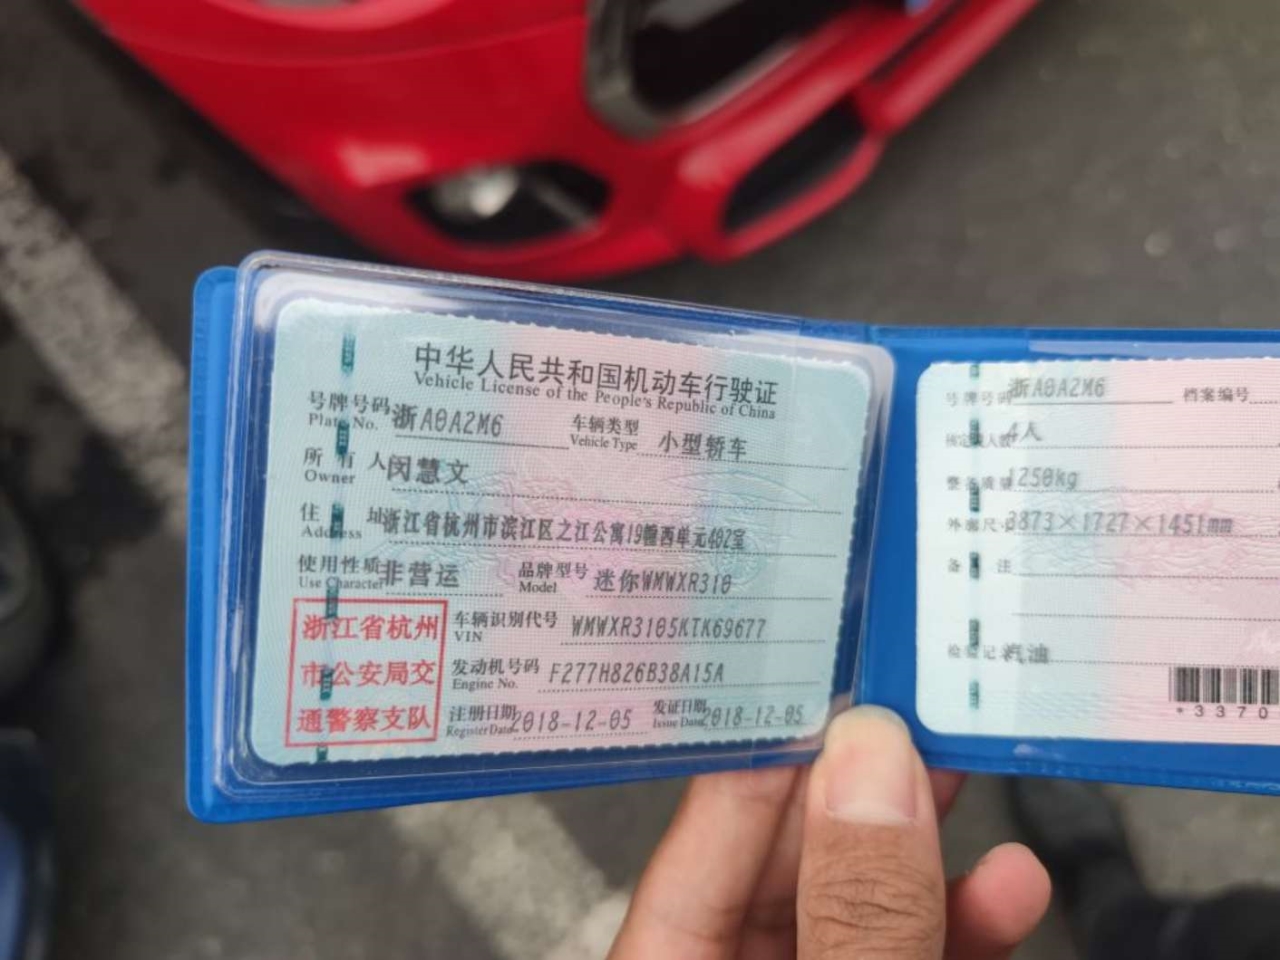 中华人民共和国机动车行驶证
Vehicle License of the People's Republic of China
号牌号码 浙A0A2M6 车辆类型 小型轿车
Plate No. Vehicle Type
所有人 闵慧文
Owner
住址 浙江省杭州市滨江区之江公寓19幢西单元402室
Address
使用性质 非营运 品牌型号 迷你WMWXR310
Use Character Model
浙江省杭州
市公安局交
通警察支队
车辆识别代号 WMWXR3105KTK69677
VIN
发动机号码 F277H826B38A15A
Engine No.
注册日期 2018-12-05 发证日期 2018-12-05
Register Date Issue Date
号牌号码 浙A0A2M6 档案编号
核定载人数 4人
整备质量 1250kg
外廓尺寸 3873×1727×1451mm
备注
检验记录 汽油
*3370